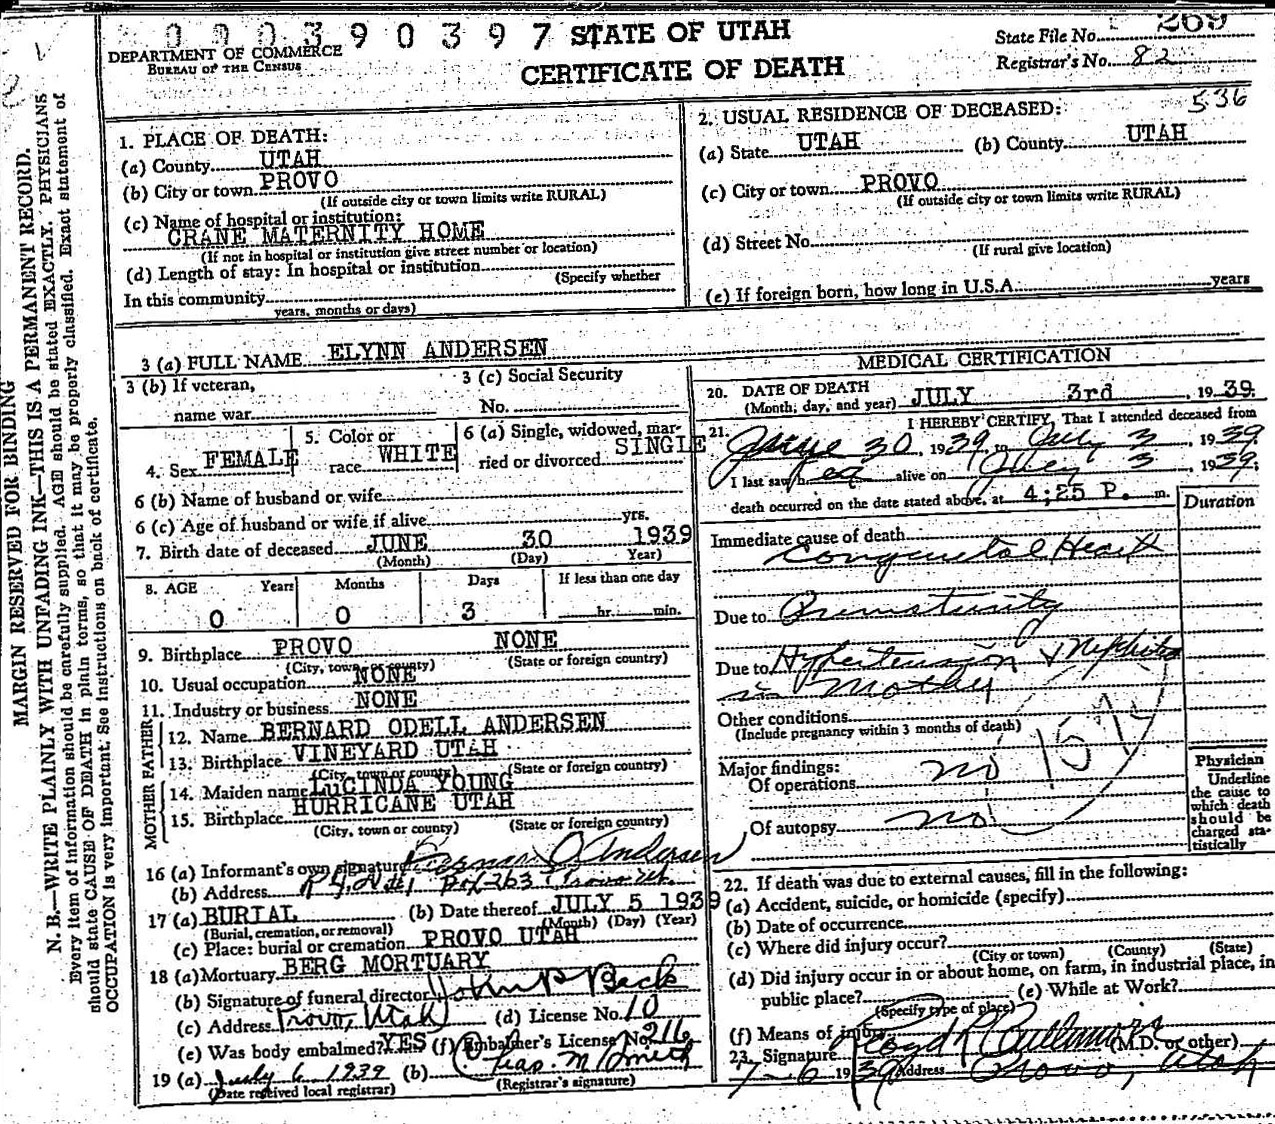 000390397 STATE OF UTAH
DEPARTMENT OF COMMERCE
BUREAU OF THE CENSUS
CERTIFICATE OF DEATH
State File No. 269
Registrar's No. 82
536
MARGIN RESERVED FOR BINDING
N. B.—WRITE PLAINLY WITH UNFADING INK—THIS IS A PERMANENT RECORD.
Every item of information should be carefully supplied. AGE should be stated EXACTLY. PHYSICIANS
should state CAUSE OF DEATH in plain terms, so that it may be properly classified. Exact statement of
OCCUPATION is very important. See instructions on back of certificate.
1. PLACE OF DEATH:
(a) County UTAH
(b) City or town PROVO
(If outside city or town limits write RURAL)
(c) Name of hospital or institution:
CRANE MATERNITY HOME
(If not in hospital or institution give street number or location)
(d) Length of stay: In hospital or institution
(Specify whether
In this community
years, months or days)
2. USUAL RESIDENCE OF DECEASED:
(a) State UTAH (b) County UTAH
(c) City or town PROVO
(If outside city or town limits write RURAL)
(d) Street No.
(If rural give location)
(e) If foreign born, how long in U.S.A. years
3 (a) FULL NAME ELYNN ANDERSEN
3 (b) If veteran,
name war
3 (c) Social Security
No.
4. Sex FEMALE
5. Color or
race WHITE
6 (a) Single, widowed, mar-
ried or divorced SINGLE
6 (b) Name of husband or wife
6 (c) Age of husband or wife if alive yrs.
7. Birth date of deceased JUNE 30 1939
(Month) (Day) Year)
8. AGE Years Months Days If less than one day
0 0 3 hr. min.
9. Birthplace PROVO NONE
(City, town or county) (State or foreign country)
10. Usual occupation NONE
11. Industry or business NONE
FATHER
12. Name BERNARD ODELL ANDERSEN
13. Birthplace VINEYARD UTAH
(City, town or county) (State or foreign country)
MOTHER
14. Maiden name LuCINDA YOUNG
15. Birthplace HURRICANE UTAH
(City, town or county) (State or foreign country)
16 (a) Informant's own signature Bernard O Andersen
(b) Address Box 263 Provo Ut.
17 (a) BURIAL (b) Date thereof JULY 5 1939
(Burial, cremation, or removal) (Month) (Day) (Year)
(c) Place: burial or cremation PROVO UTAH
18 (a) Mortuary BERG MORTUARY
(b) Signature of funeral director John P Beck
(c) Address Provo, Utah (d) License No. 10
(e) Was body embalmed? YES (f) Embalmer's License No 216
19 (a) July 6 1939 (b) Chas. M Smith
(Date received local registrar) (Registrar's signature)
MEDICAL CERTIFICATION
20. DATE OF DEATH
(Month, day, and year) JULY 3rd, 1939.
21. I HEREBY CERTIFY, That I attended deceased from
June 30, 1939, to July 3, 1939
I last saw her alive on July 3, 1939;
death occurred on the date stated above, at 4;25 P. m.
Duration
Immediate cause of death
Congenital Heart
Due to Prematurity
Due to Hypertension & Nephritis
in Mother
Other conditions
(Include pregnancy within 3 months of death)
Major findings:
Of operations no
Of autopsy no
Physician
Underline
the cause to
which death
should be
charged sta-
tistically
22. If death was due to external causes, fill in the following:
(a) Accident, suicide, or homicide (specify)
(b) Date of occurrence
(c) Where did injury occur?
(City or town) (County) (State)
(d) Did injury occur in or about home, on farm, in industrial place, in
public place? (e) While at Work?
(Specify type of place)
(f) Means of injury
23. Signature Lloyd L Cullimore (M.D. or other)
7-6 1939 Address Provo, Utah